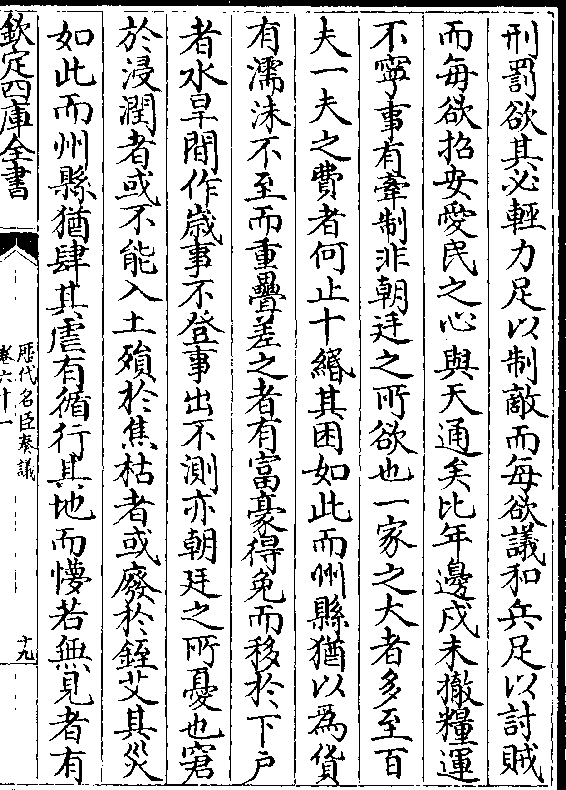 刑罰欲其必輕力足以制敵而每欲議和兵足以討賊
而每欲招安愛民之心與天通矣比年邊戍未撤糧運
不寧事有牽制非朝廷之所欲也一家之大者多至百
夫一夫之費者何止十緡其困如此而州縣猶以為貨
有濡沫不至而重疊差之者有富豪得免而移於下户
者水旱間作歳事不登事出不測亦朝廷之所憂也窘
於浸潤者或不能入土殞於焦枯者或廢於銍艾其災
如此而州縣猶肆其虐有循行其地而懜若無見者有
欽定四庫全書
歴代名臣奏議
卷六十一
十九